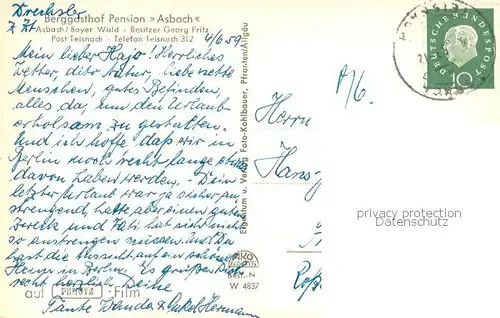 Drechsler
z. Zt.
Berggasthof Pension »Asbach«
Asbach/Bayer. Wald - Besitzer Georg Fritz
Post Teisnach - Telefon Teisnach 312
4/6.59.
Mein lieber Hajo! Herrliches
Wetter, dito Natur, liebe nette
Menschen, gutes Befinden,
alles da, um den Urlaub
erholsam zu gestalten.
Und ich hoffe, daß wir in
Berlin noch recht lange etwas
davon haben werden. Dein
letzter Urlaub war ja sicher an-
strengend, hatte aber einen guten
Zweck und Vati hat sich nicht
so anstrengen müssen. Und Du
hast die Aussicht auf ein schönes
Heim in Berlin. Es grüßen Dich
recht herzlich Deine
Tante Wanda & Onkel Hermann
auf PERUTZ-Film
Eigentum u. Verlag Foto-Kohlbauer, Pfronten/Allgäu
AKO
Best. N
W 4837
Herrn
Hans-
DEUTSCHE BUNDESPOST
10
privacy protection
watermark